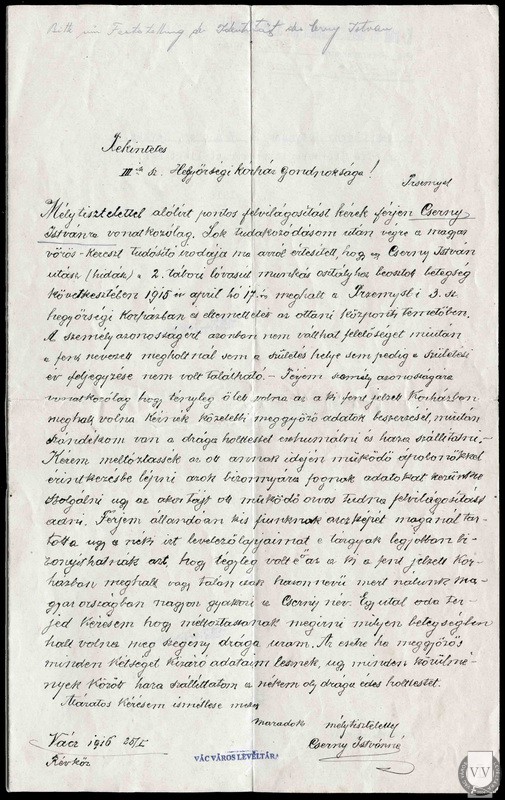 Bitte um Feststellung der Identität des Cserny Istvan
Tekintetes
III ik sz. Helyőrségi kórház gondnoksága!
Przemysl
Mély tisztelettel alólirt pontos felvilágositást kérek férjem Cserny
Istvánra vonatkozólag. Sok tudakozódásom után végre a magyar
vörös-kereszt tudósitó irodája ma arról értesitett, hogy Cserny István
utász (hidász) a 2. tábori lóvasut munkás osztályhoz beosztott betegség
következtében 1915 év april hó 17.én meghalt a Przemysl-i 3. sz.
helyőrségi kórházban és eltemettetett az ottani központi temetőben.
A személyazonosságért azonban nem vállhat felelőséget miután
a fent nevezett meghaltnál sem a születés helye sem pedig a születési
év feljegyzése nem volt található. – Férjem személyazonosságára
vonatkozólag hogy tényleg ő lett volna az a ki fent jelzett Kórházban
meghalt volna kérnék közelebbi meggyőző adatok beszerzését, miután
szándékom van a drága holttestet exhumálni és haza szállitatni. –
Kérem méltóztassék az ott annak idején működő ápolónőkkel
érintkezésbe lépni azok bizonnyára fognak adatokat kezünkbe
szolgálni ugy az akortájt ott működő orvos tudna felvilágositást
adni. Férjem állandóan kis fiunknak arczképét magánál tar-
totta ugy a neki irt levelezőlapjaimat e tárgyak legjobban bi-
zonyithatnák azt, hogy tégleg volt e ő az a ki a fent jelzett Kór-
házban meghalt, vagy talán csak hasonnevü mert nálunk Ma-
gyarországban nagyon gyakori a Cserny név. Egyuttal oda ter-
jed kérésem hogy méltóztassanak megirni milyen betegségben
halt volna meg szegény drága uram. Az esetre ha meggyőző
minden kétséget kizáró adataim lesznek, ugy minden körülmé-
nyek között haza szállittatom a nékem oly drága édes holttestét.
Alázatos kérésem ismétlése mellett
maradok mély tisztelettel
Vácz 1916 25/I
Cserny Istvánné
Révköz
VÁC VÁROS LEVÉLTÁRA
VV